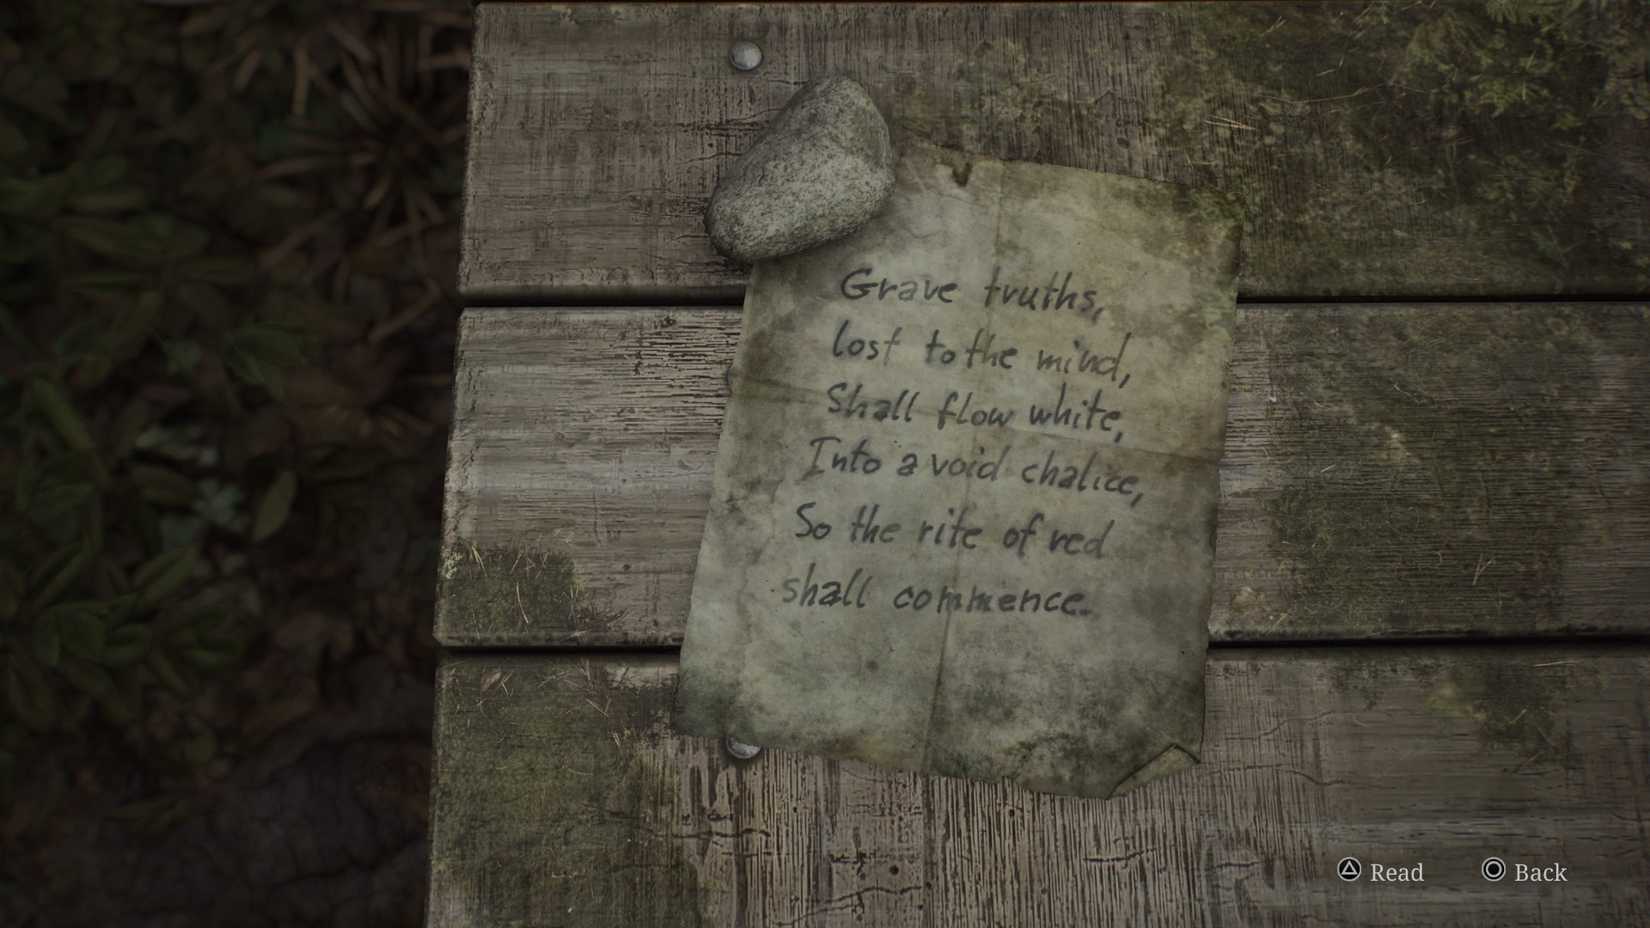 Grave truths,
lost to the mind,
Shall flow white,
Into a void chalice,
So the rite of red
shall commence.
Read Back